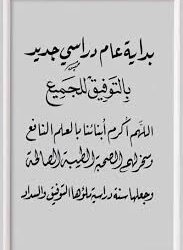 بداية عام دراسي جديد
بالتوفيق للجميع
اللهم أكرم أبنائنا بالعلم النافع
وسخر لهم الصحبة الطيبة الصالحة
وجعلها سنة دراسية ملؤها التوفيق والسداد